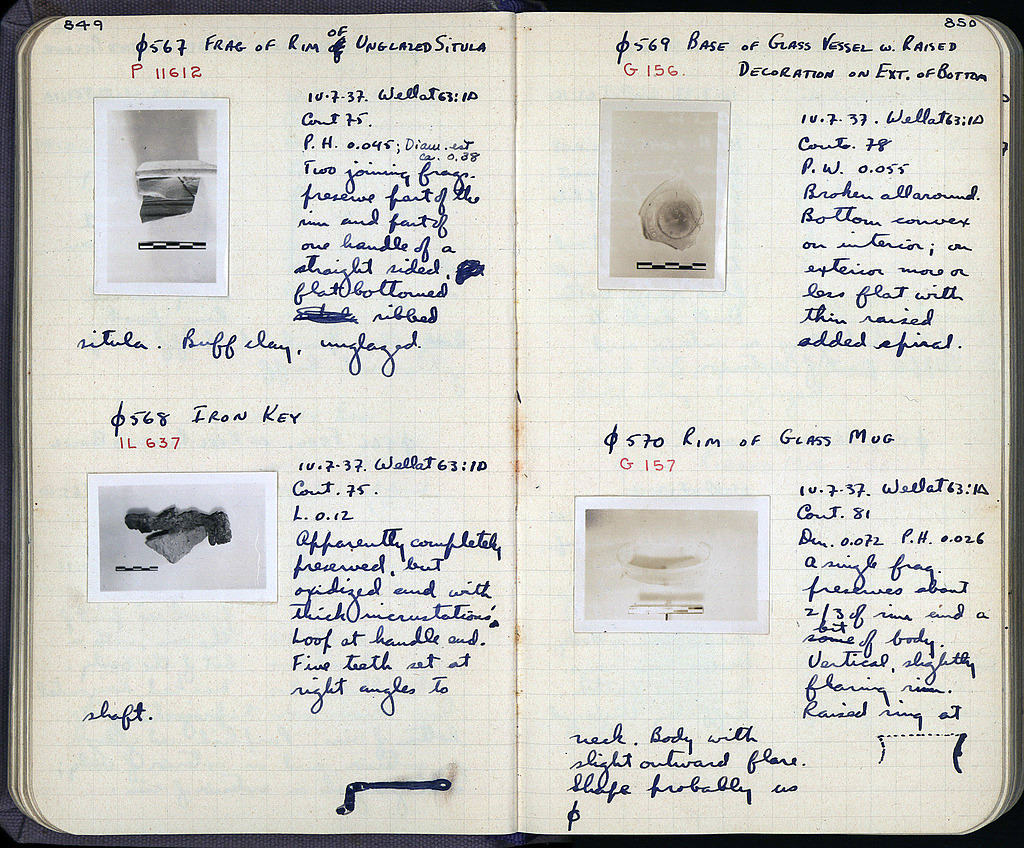 849
ϕ567 FRAG OF RIM OF UNGLAZED SITULA
P 11612
10.7.37. Well at 63:ΙΔ
Cont 75.
P.H. 0.045; Diam. est
ca. 0.38
Two joining frags.
preserve part of the
rim and part of
one handle of a
straight sided,
flat bottomed
ribbed
situla. Buff clay, unglazed.
ϕ568 IRON KEY
IL 637
10.7.37. Well at 63:ΙΔ
Cont. 75.
L. 0.12
Apparently completely
preserved, but
oxidized and with
thick incrustations.
Loop at handle end.
Five teeth set at
right angles to
shaft.
850
ϕ569 BASE OF GLASS VESSEL W. RAISED
G 156. DECORATION ON EXT. OF BOTTOM
10.7.37. Well at 63:ΙΔ
Cont. 78
P.W. 0.055
Broken all around.
Bottom convex
on interior; on
exterior more or
less flat with
thin raised
added spiral.
ϕ570 RIM OF GLASS MUG
G 157
10.7.37. Well at 63:ΙΔ
Cont. 81
Dm. 0.072 P.H. 0.026
A single frag.
preserves about
2/3 of rim and a
bit
some of body.
Vertical, slightly
flaring rim.
Raised ring at
neck. Body with
slight outward flare.
Shape probably as
ϕ